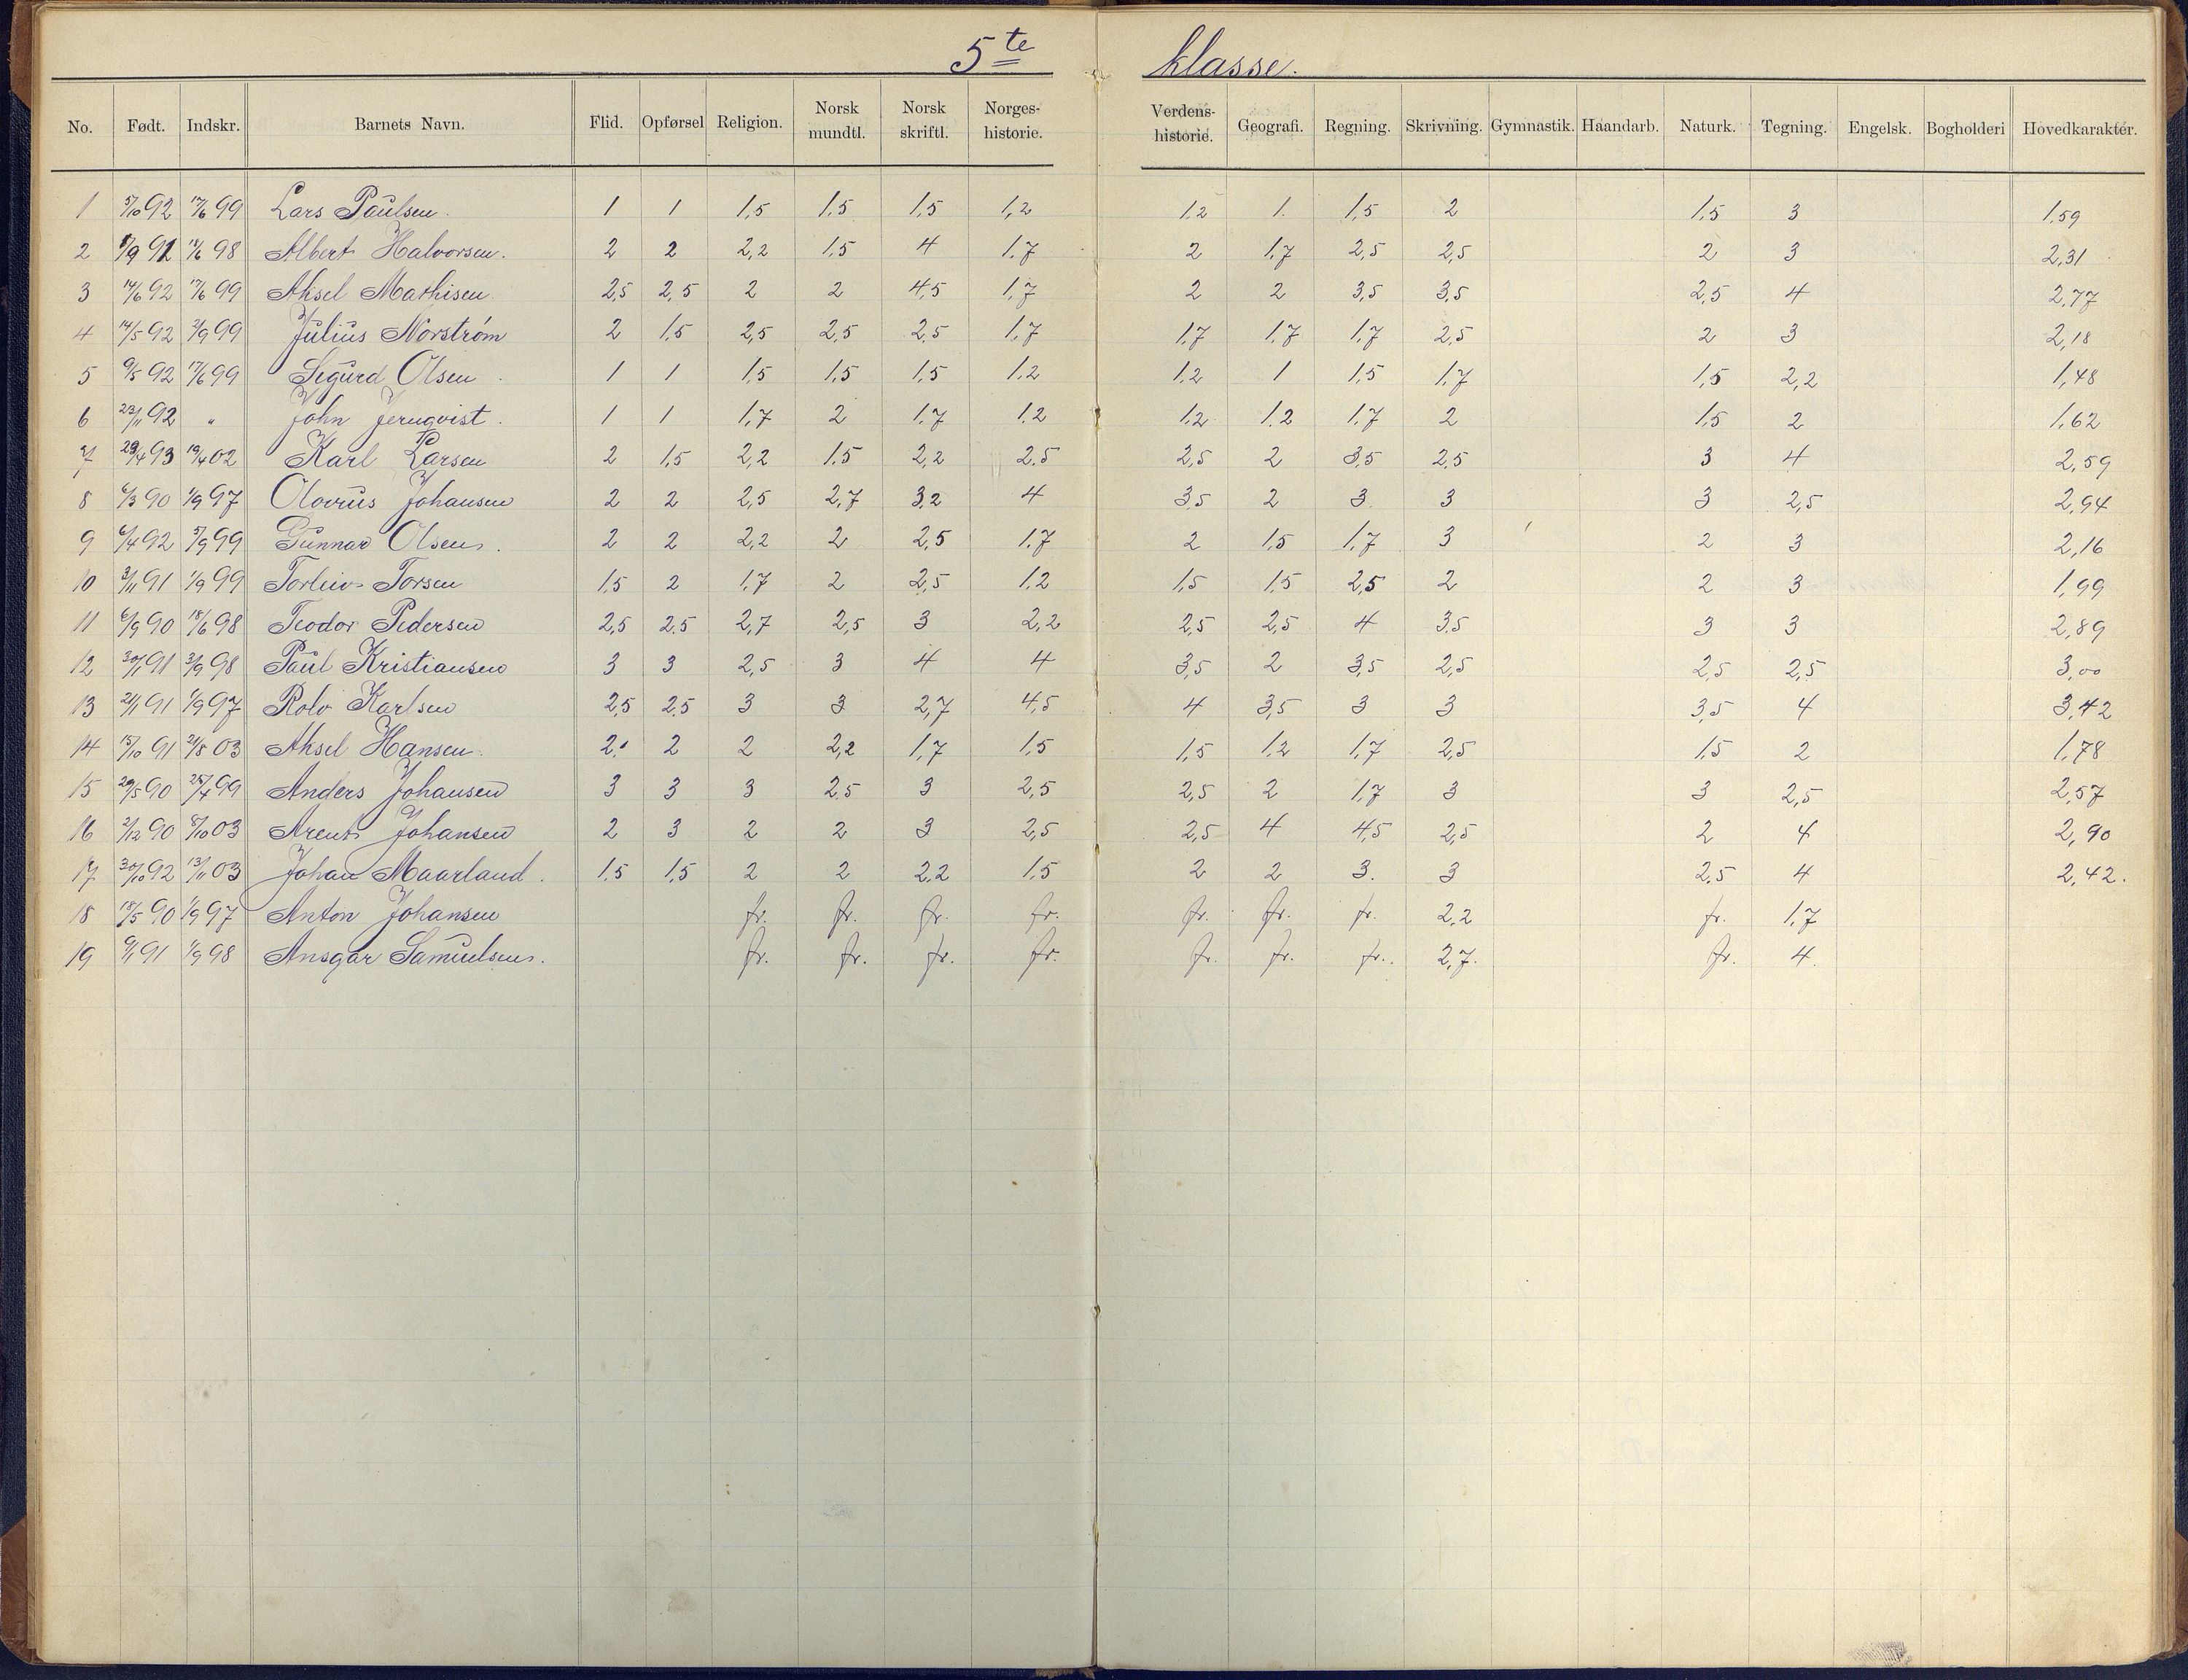 5te klasse.
No. Født. Indskr. Barnets Navn. Flid. Opførsel Religion. Norsk mundtl. Norsk skriftl. Norges-historie. Verdens-historie. Geografi. Regning. Skrivning. Gymnastik. Haandarb. Naturk. Tegning. Engelsk. Bogholderi Hovedkarakter.
1 5/10 92 17/6 99 Lars Paulsen. 1 1 1,5 1,5 1,5 1,2 1,2 1. 1,5 2 1,5 3 1,59
2 9 91 98 Albert Halvorsen. 2 2 2,2 1,5 4 1,7 2 1,7 2,5 2,5 2 3 2,31
3 14/6 92 17/6 99 Aksel Mathisen 2,5 2,5 2 2 4,5 1,7 2 2 3,5 3,5 2,5 4 2,77
4 14/5 92 2/9 99 Julius Norström 2 1,5 2,5 2,5 2,5 1,7 1,7 1,7 1,7 2,5 2 3 2,18
5 9/5 92 17/6 99 Sigurd Olsen. 1 1 1,5 1,5 1,5 1,2 1,2 1 1,5 1,7 1,5 2,2 1,48
6 23/11 92 " John Jernqvist. 1 1 1,7 2 1,7 1,2 1,2 1,2 1,7 2 1,5 2 1,62
7 29/4 93 19/4 02 Karl Larsen 2 1,5 2,2 1,5 2,2 2,5 2,5 2 3,5 2,5 3 4 2,59
8 6/3 90 1/9 97 Olovius Johansen 2 2 2,5 2,7 3,2 4 3,5 2 3 3 3 2,5 2,94
9 6/4 92 5/9 99 Gunnar Olsen. 2 2 2,2 2 2,5 1,7 2 1,5 1,7 3 2 3 2,16
10 3/11 91 1/9 99 Torleiv Torsen 1,5 2 1,7 2 2,5 1,2 1,5 1,5 2,5 2 2 3 1,99
11 6/9 90 18/6 98 Teodor Pedersen 2,5 2,5 2,7 2,5 3 2,2 2,5 2,5 4 3,5 3 3 2,89
12 30/1 91 3/9 98 Paul Kristiansen 3 3 2,5 3 4 4 3,5 2 3,5 2,5 2,5 2,5 3,00
13 21/1 91 1/9 97 Rolv Karlsen 2,5 2,5 3 3 2,7 4,5 4 3,5 3 3 3,5 4 3,42
14 15/10 91 21/8 03 Aksel Hansen. 2. 2 2 2,2 1,7 1,5 1,5 1,2 1,7 2,5 1,5 2 1,78
15 29/5 90 25/4 99 Anders Johansen 3 3 3 2,5 3 2,5 2,5 2 1,7 3 3 2,5 2,57
16 2/12 90 8/10 03 Arent Johansen 2 3 2 2 3 2,5 2,5 4 4,5 2,5 2 4 2,90
17 30/10 92 13/11 03 Johan Maarland. 1,5 1,5 2 2 2,2 1,5 2 2 3. 3 2,5 4 2,42.
18 18/5 90 1/9 97 Anton Johansen fr. fr. fr. fr. fr. fr. fr. 2,2 fr. 1,7
19 9/1 91 1/9 98 Ansgar Samuelsen. fr. fr. fr. fr. fr. fr. fr. 2,7. fr. 4